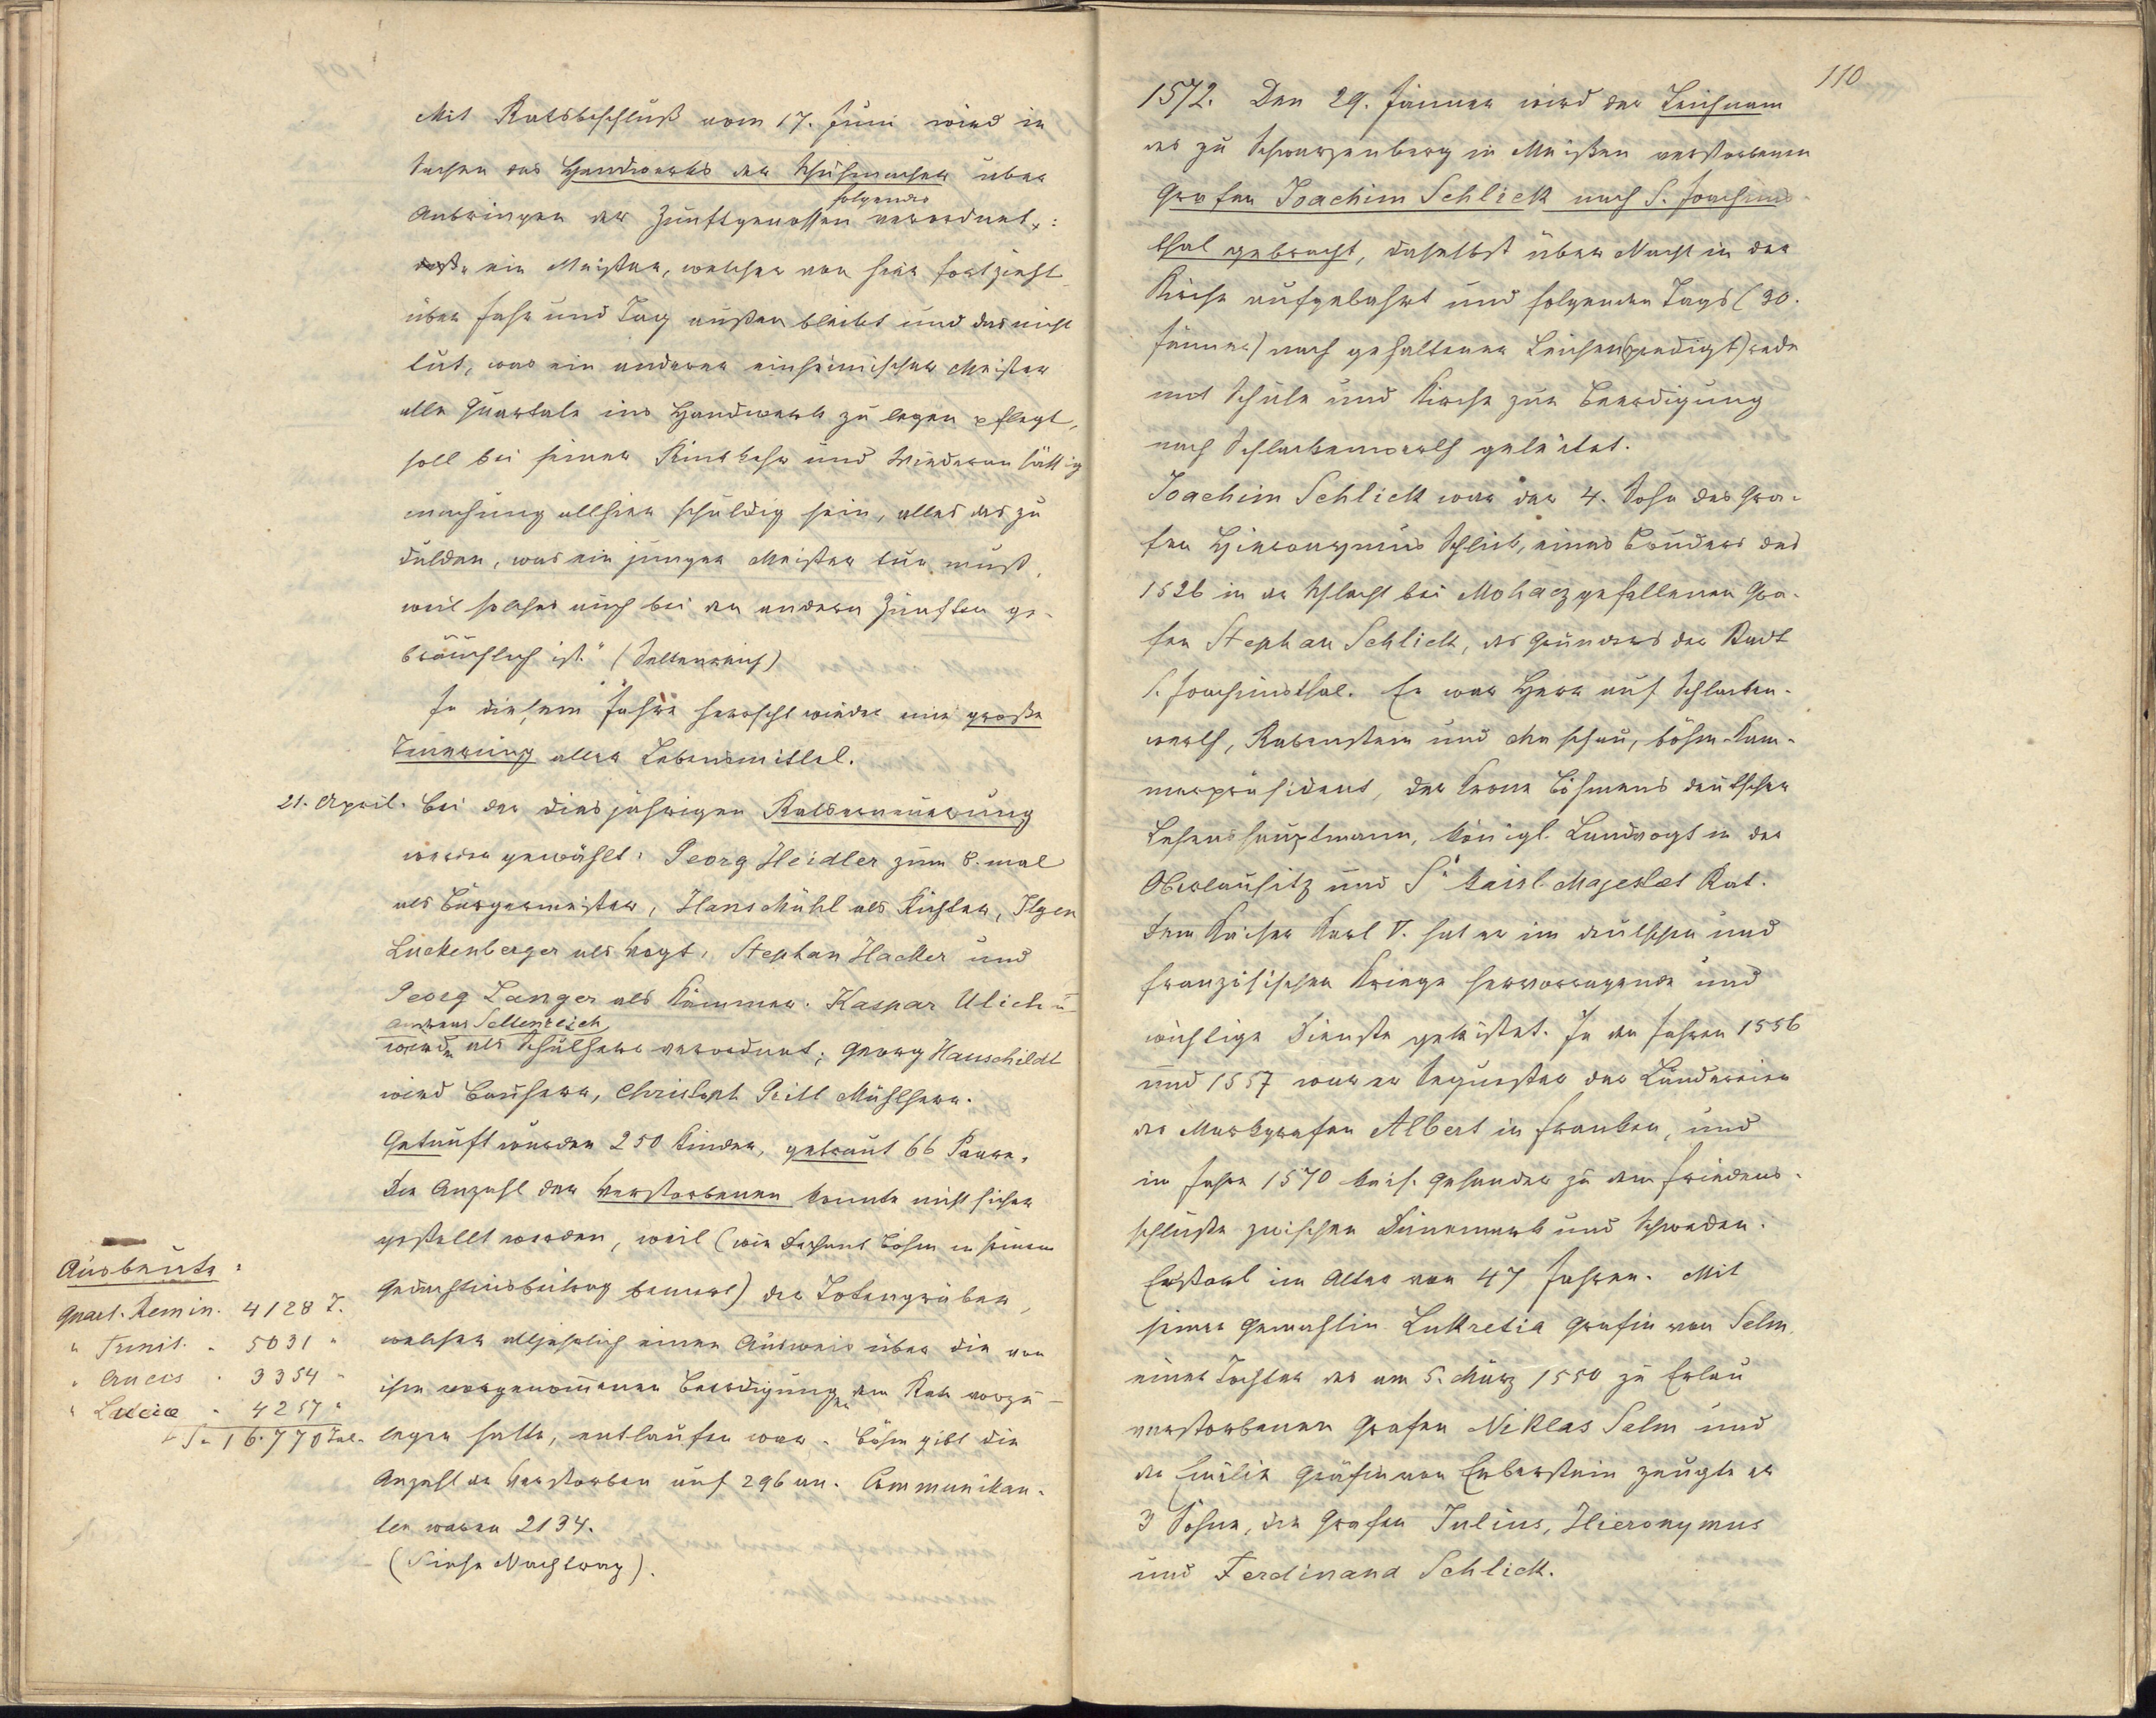 Mit Ratsbeschluß vom 17. Juni wird in
Sachen des Handwerks der Schuhmacher über
folgendes
Anbringen der Zunftgenossen verordnet:
daß „ein Meister, welcher von hier fortzieht
über Jahr und Tag außen bleibt und das nicht
tut, was ein anderer einheimischer Meister
alle Quartale ins Handwerk zu legen pflegt,
soll bei seiner Rückkehr und Wiederansässig
machung allhier schuldig sein, alles das zu
dulden, was ein junger Meister tun muß,
weil solches auch bei den andern Zünften ge-
bräuchlich ist." (Seltenreich)
In diesem Jahre herrscht wieder eine große
Teuerung aller Lebensmittel.
21. April. Bei der diesjährigen Ratserneuerung
werden gewählt: Georg Heidler zum 8. mal
als Bürgermeister, Hans Mühl als Richter, Ilgen
Luckenberger als Vogt, Stephan Hacker und
Georg Langer als Kämmer. Kaspar Ulich u
Andreas Seltenreich
werden als Schulherr verordnet; Georg Hauschildt
wird Bauherr, Christoph Geitl Mühlherr.
Getauft wurden 250 Kinder, getraut 66 Paare.
Die Anzahl der Verstorbenen konnte nicht sicher
gestellt werden, weil (wie Dechant Böhm in seinem
Gedächtnisbeitrag bemerkt) der Totengräber,
welcher alljährlich einen Ausweis über die von
ihm vorgenommenen Beerdigungen dem Rate vorzu-
legen hatte, entlaufen war. Böhm gibt die
Anzahl der Verstorben auf 296 an. Communikan-
ten waren 2134.
(Siehe Nachtrag).
Ausbeute:
Quart. Remin. 4128 T.
" Trinit. " 5031 "
" Crucis " 3354 "
" Luciæ " 4257 "
Sa 16.770 Tal.
110
1572. Den 29. Jänner wird der Leichnam
des zu Schwarzenberg in Meißen verstorbenen
Grafen Joachim Schlick nach S. Joachims-
thal gebracht, daselbst über Nacht in der
Kirche aufgebahrt und folgenden Tags (30.
Jänner) nach gehaltener Leichen(predigt)rede
mit Schule und Kirche zur Beerdigung
nach Schlackenwerth geleitet.
Joachim Schlick war der 4. Sohn des Gra-
fen Hieronymus Schlick, eines Bruders des
1526 in der Schlacht bei Mohacz gefallenen Gra-
fen Stephan Schlick, des Gründers der Stadt
S. Joachimsthal. Er war Herr auf Schlacken-
werth, Rabenstein und Maschau, böhm. Kam-
merpräsident, der Krone Böhmens deutscher
Lehenshauptmann, königl. Landvogt in der
Oberlausitz und Sr kaisl. Majestæt Rat.
Dem Kaiser Karl V. hat er im deutschen und
französischen Kriege hervorragende und
wichtige Dienste geleistet. In den Jahren 1556
und 1557 war er Sequester der Ländereien
des Markgrafen Albert in Franken, und
im Jahre 1570 kais. Gesandter zu dem Friedens-
schluße zwischen Dänemark und Schweden.
Er starb im Alter von 47 Jahren. Mit
seiner Gemahlin Lukretia Gräfin von Salm,
einer Tochter des am 5. März 1550 zu Erlau
verstorbenen Grafen Niklas Salm und
der Emilie Gräfin von Eberstein zeugte er
3 Söhne, die Grafen Julius, Hieronymus
und Ferdinand Schlick.